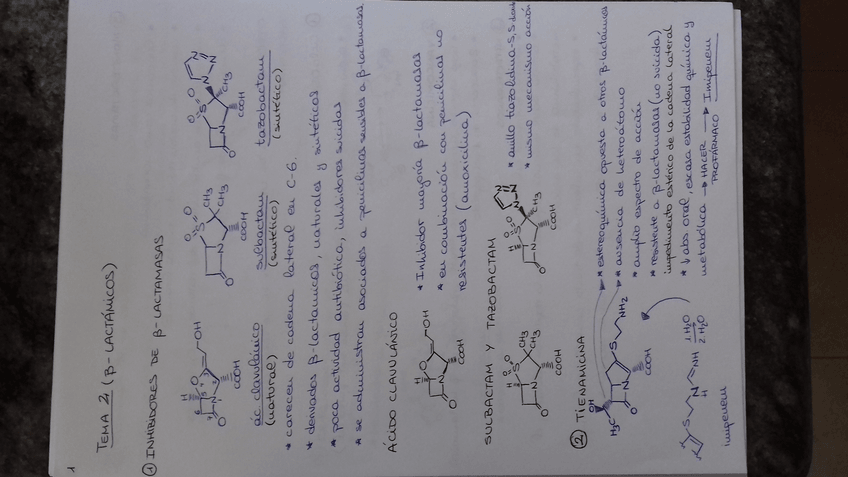 1
TEMA 2 (β-LACTÁNICOS)
① INHIBIDORES DE β-LACTAMASAS
ác clavulánico
(natural)
sulbactam
(sintético)
tazobactam
(sintético)
* carecen de cadena lateral en C-6.
* derivados β-lactamicos, naturales y sintéticos
* poca actividad antibiótica, inhibidores suicidas
* se administran asociados a penicilinas sensibles a β-lactamasas
ÁCIDO CLAVULÁNICO
* Inhibidor mayoría β-lactamasas
* en combinación con penicilinas no
resistentes (amoxicilina)
SULBACTAM Y TAZOBACTAM
* anillo tiazolidina-S,S
* mismo mecanismo acción
② TIENAMICINA
* estereoquímica opuesta a otros β-lactámicos
* ausencia de heteroátomo
* amplio espectro de acción
* resistente a β-lactamasas (no suicida)
impedimento estérico de la cadena lateral
* ↓ abs oral, escasa estabilidad química y
metabólica → HACER → Imipenem
PROFÁRMACO
1. H₂O
2. H₂O
imipenem